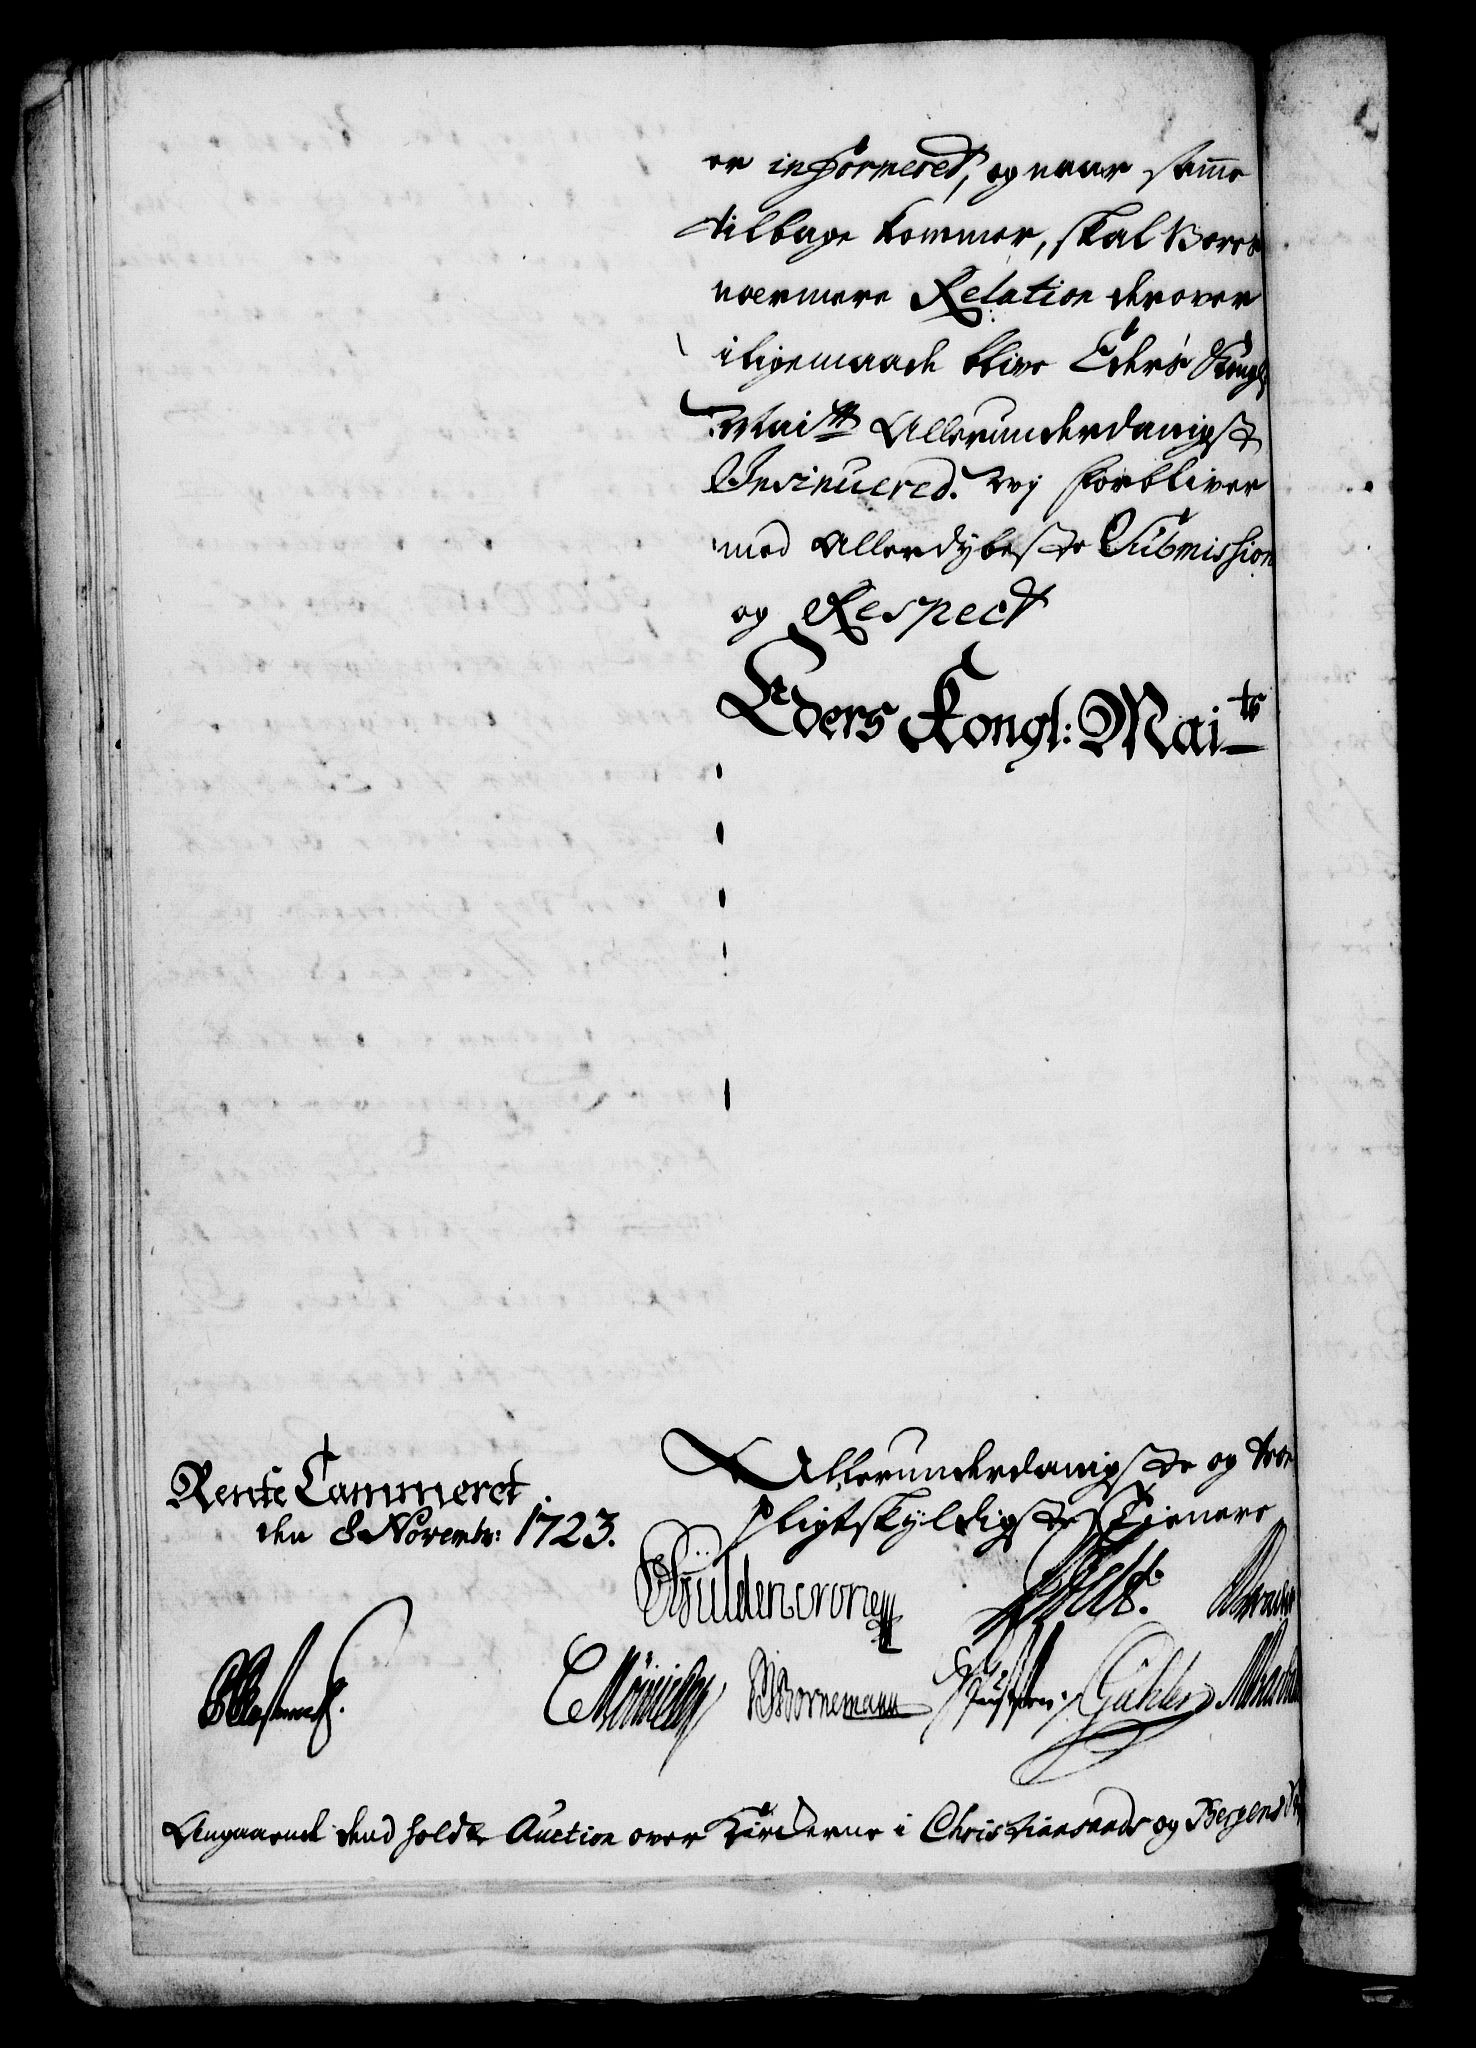 er informeret, og naar samme
tilbage kommer, skal Vores
nærmere Relation derover
iligemaade blive Eders Kongl:
Maitt Allerunderdanigst
Insinuered. Wj forbliver
med Allerdybeste Submission
og Respect
Eders Kongl: Maits
Rente Cammeret
den 8 Novembr: 1723.
Allerunderdanigste og troe
pligtskyldigste Tienere
Güldencrone
Bornemann
Gähler
Angaaende dend holdte Auction over Kircherne i Christiansands og Bergens